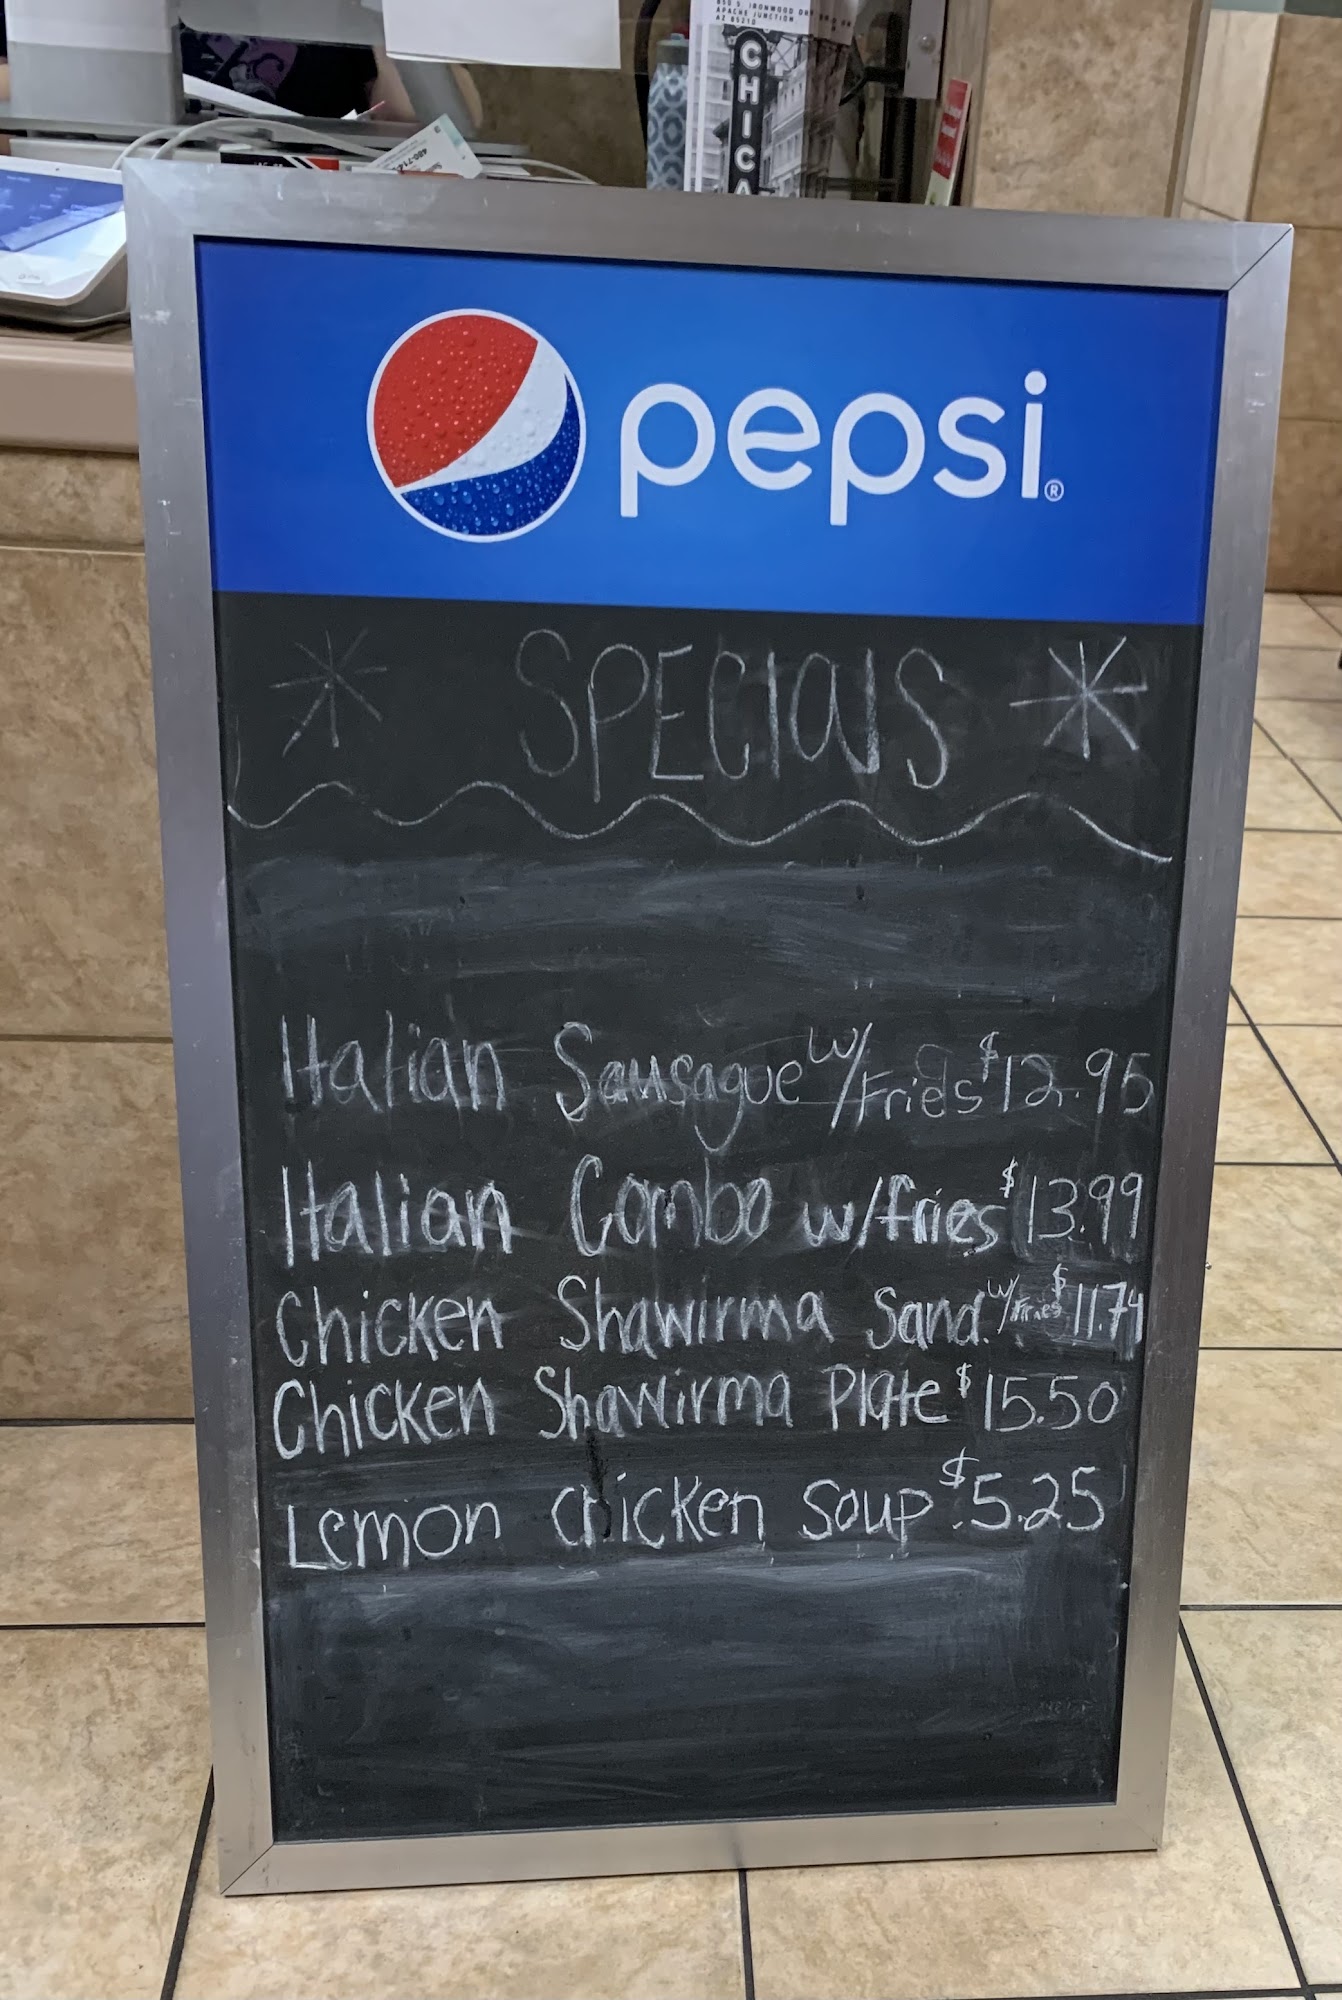 850 S. IRONWOOD DR
APACHE JUNCTION
AZ 85210
CHICA
480-714
pepsi®
* SPECIALS *
Italian Sausague w/Fries $12.95
Italian Combo w/fries $13.99
Chicken Shawirma Sand. w/Fries $11.74
Chicken Shawirma Plate $15.50
Lemon chicken soup $5.25